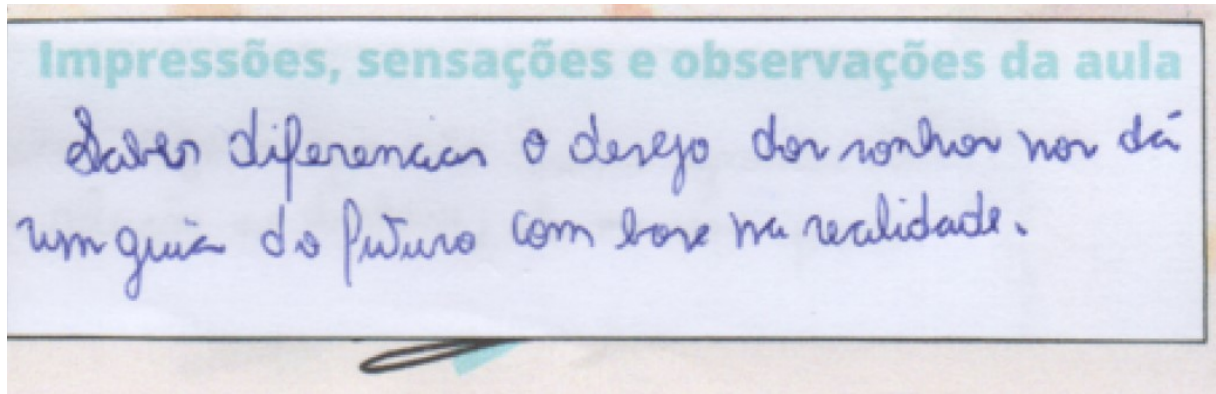 Impressões, sensações e observações da aula
Saber diferenciar o desejo dos sonhos nos dá
um guia do futuro com base na realidade.